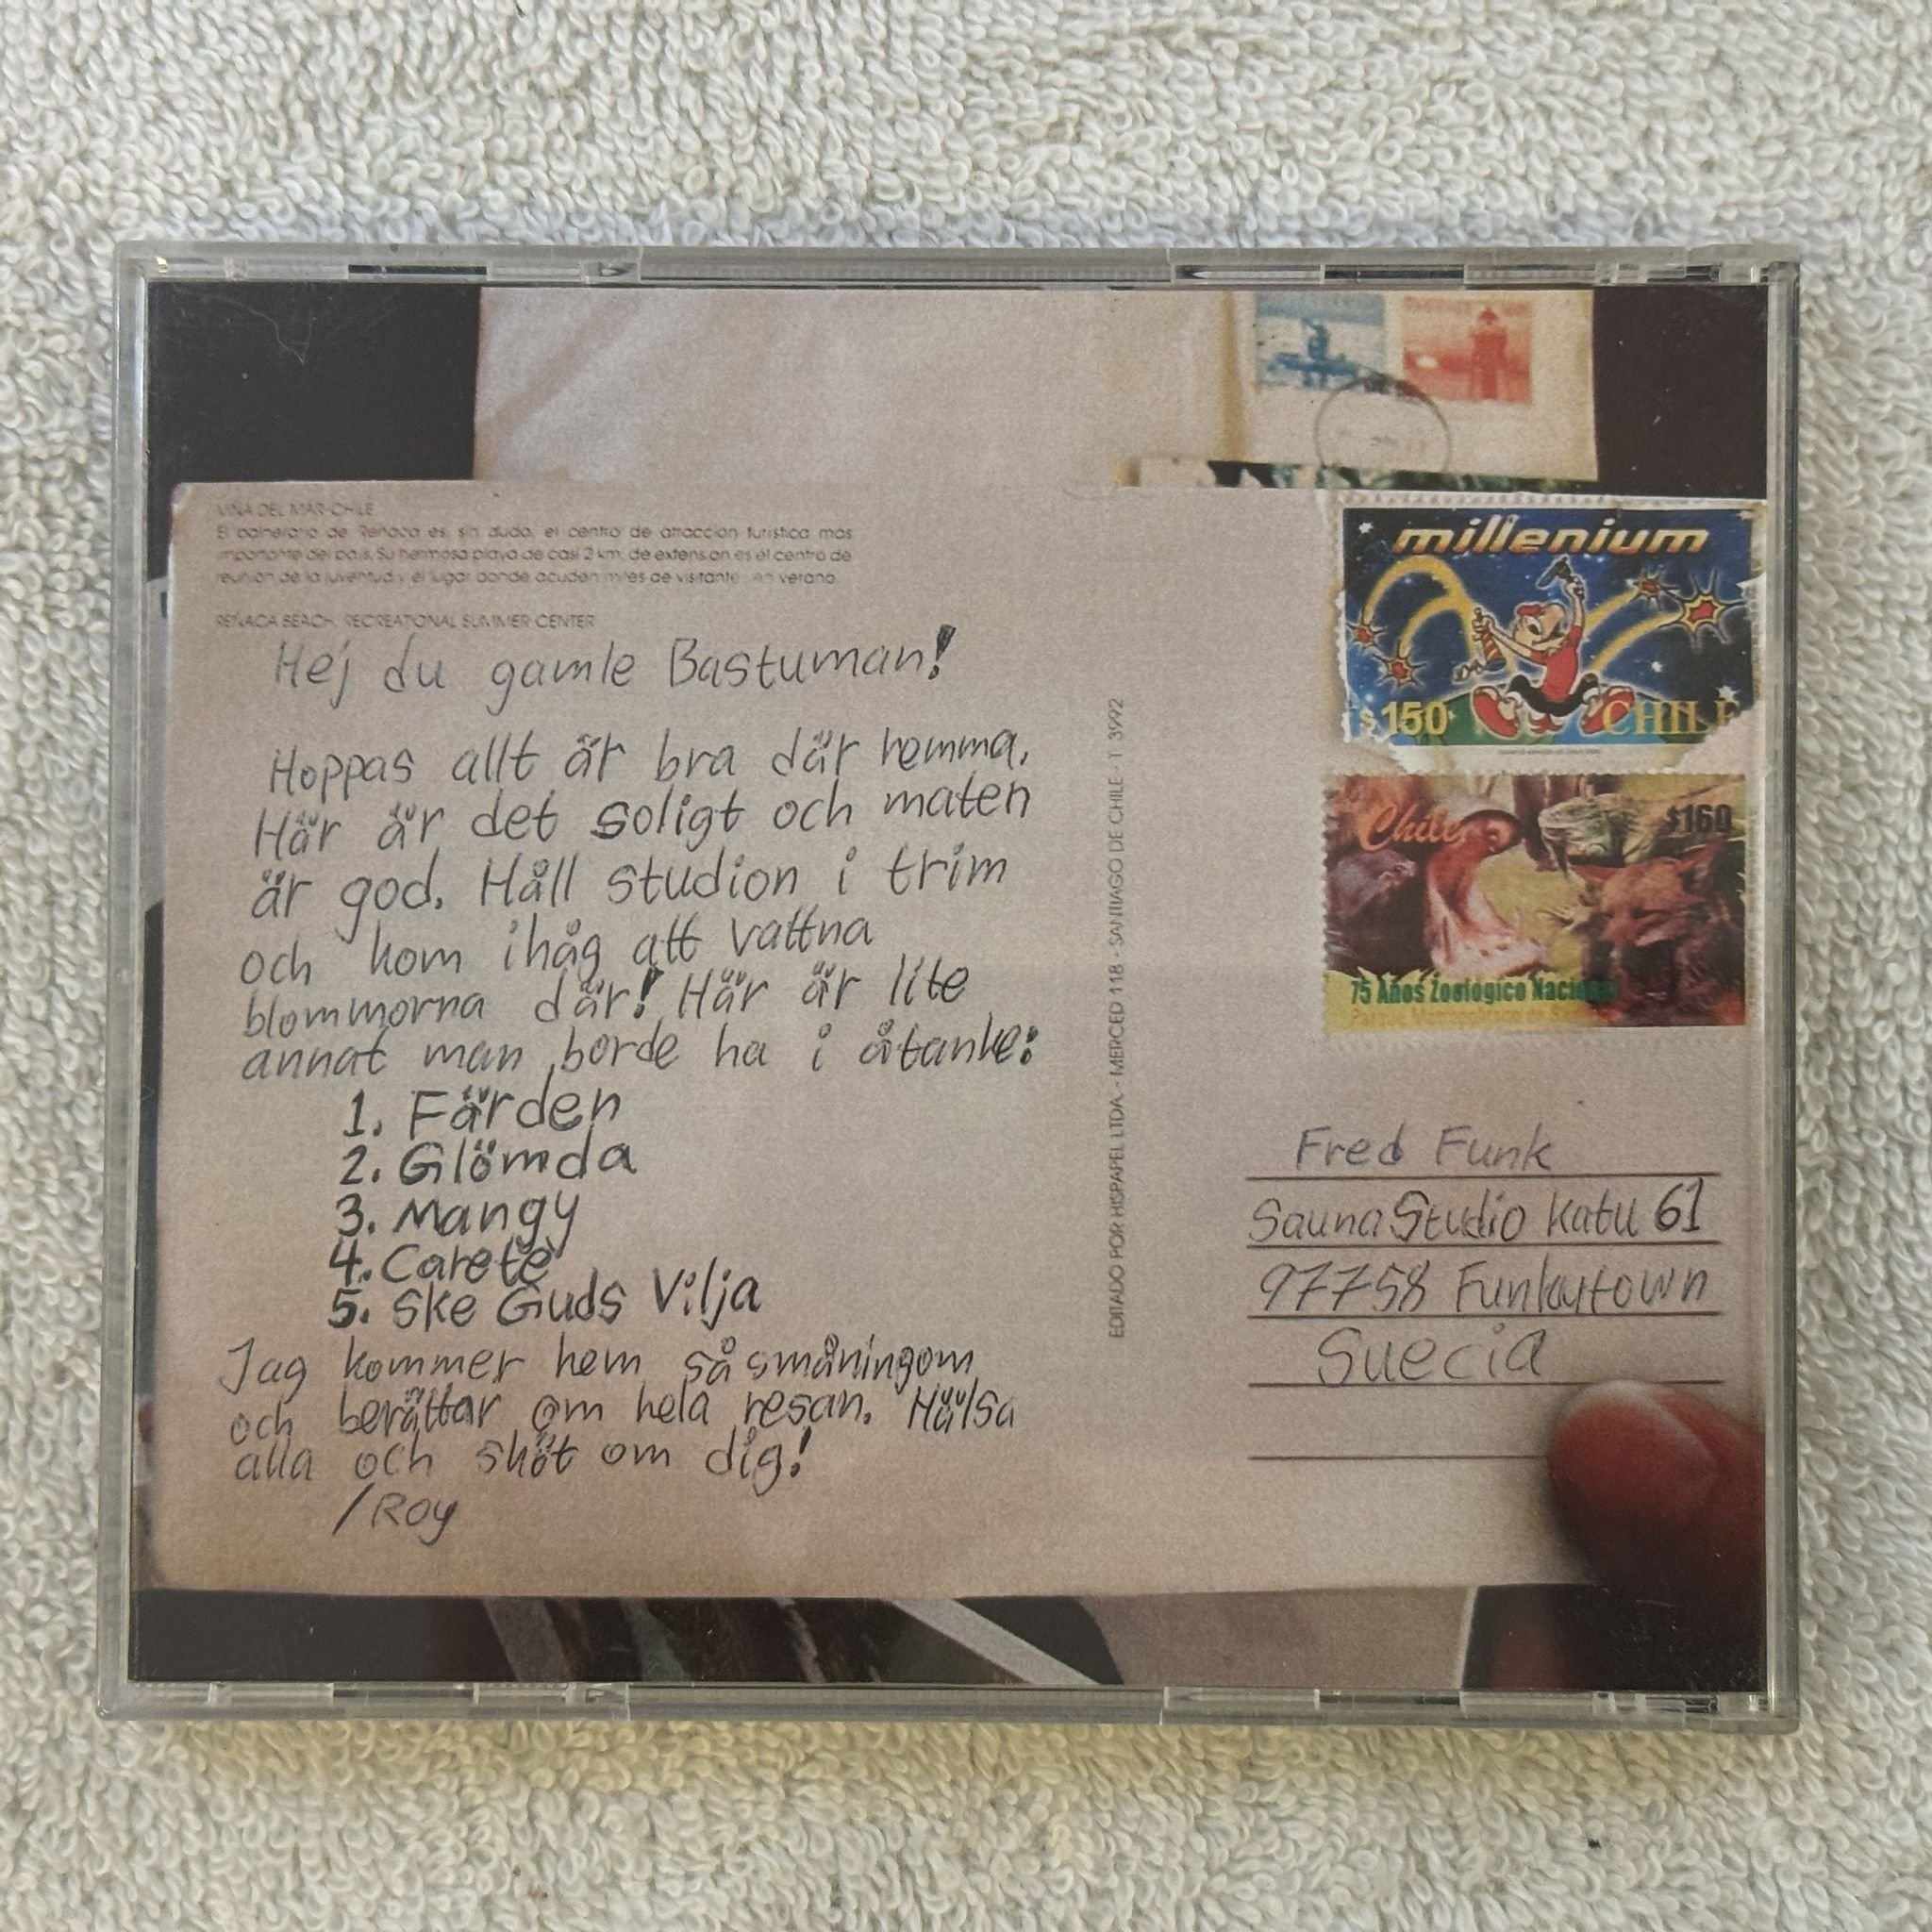 VIÑA DEL MAR-CHILE
El balneario de Reñaca es, sin duda, el centro de atracción turística más
importante del país. Su hermosa playa de casi 3 km. de extensión es el centro de
reunión de la juventud y el lugar donde acuden miles de visitante en verano.
REÑACA BEACH, RECREATIONAL SUMMER CENTER
Hej du gamle Bastuman!
Hoppas allt är bra där hemma.
Här är det soligt och maten
är god. Håll studion i trim
och kom ihåg att vattna
blommorna där! Här är lite
annat man borde ha i åtanke:
1. Färden
2. Glömda
3. Mangy
4. Carete
5. Ske Guds Vilja
Jag kommer hem så småningom
och berättar om hela resan. Hälsa
alla och sköt om dig!
/Roy
EDITADO POR HISPAPEL LTDA. - MERCED 118 - SANTIAGO DE CHILE - T 3992
millenium
$150 CHILE
Chile $160
75 Años Zoológico Nacional
Fred Funk
Sauna Studio Katu 61
97758 Funkytown
Suecia